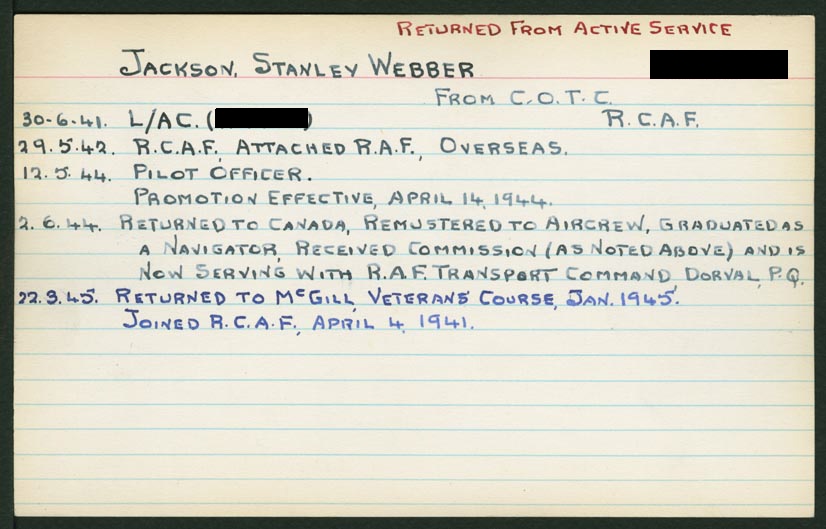 RETURNED FROM ACTIVE SERVICE
JACKSON, STANLEY WEBBER
FROM C.O.T.C.
30-6-41. L/AC. ( ) R.C.A.F.
29.5.42. R.C.A.F. ATTACHED R.A.F., OVERSEAS.
12.5.44. PILOT OFFICER.
PROMOTION EFFECTIVE, APRIL 14, 1944.
2.6.44. RETURNED TO CANADA, REMUSTERED TO AIRCREW, GRADUATED AS
A NAVIGATOR, RECEIVED COMMISSION (AS NOTED ABOVE) AND IS
NOW SERVING WITH R.A.F. TRANSPORT COMMAND, DORVAL, P.Q.
22.3.45. RETURNED TO McGILL, VETERANS COURSE, JAN. 1945.
JOINED R.C.A.F., APRIL 4, 1941.